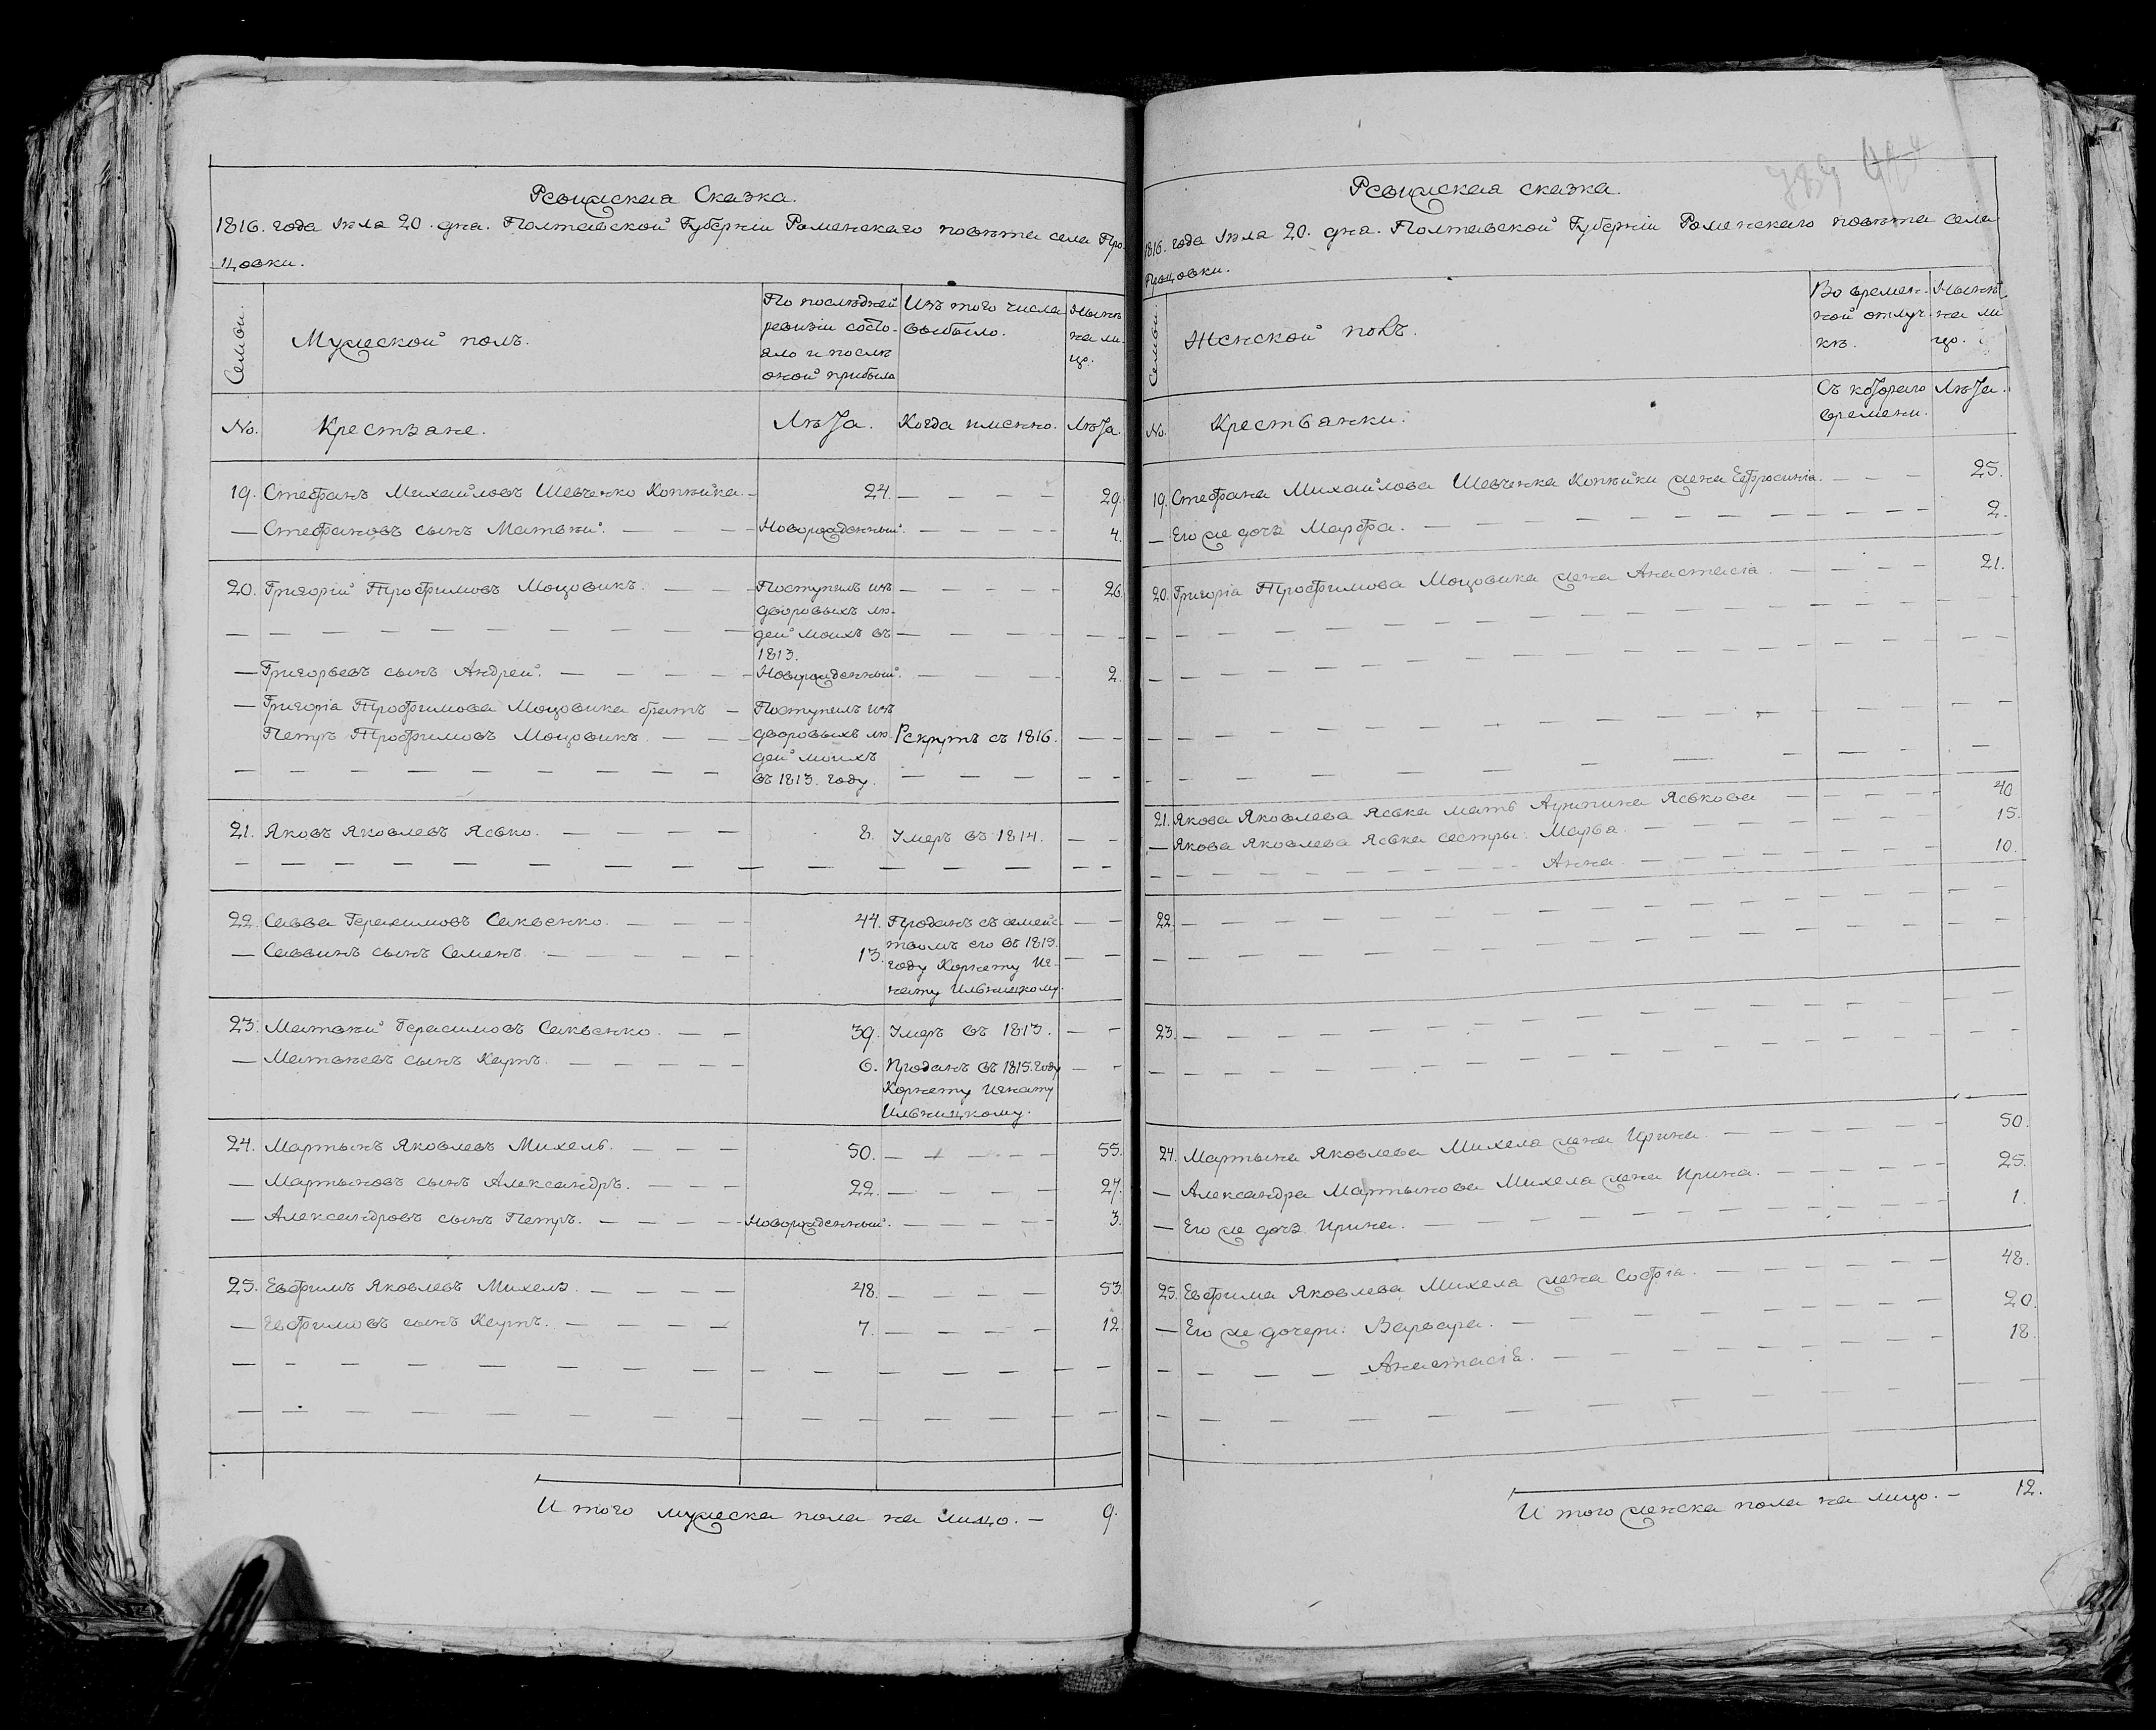 Ревижская Сказка.
1816. года Іюля 20. дня. Полтавской Губерніи Роменскаго повѣта села Про-
цовки.
Семьи.
Мужеской полъ.
По послѣдней
ревизіи состо-
яло и послѣ
оной прибыло
Изъ того числа
выбыло.
Нынѣ
на ли-
цо.
No. Крестьяне. Лѣта. Когда именно. Лѣта.
19. Стефанъ Михайловъ Шевченко Копѣйка. 24. 29.
Стефановъ сынъ Матвѣй. Новорожденный. 4.
20. Григорій Трофимовъ Моцовикъ. Поступилъ изъ 26.
дворовыхъ лю-
дей моихъ въ
1813.
Григорьевъ сынъ Андрей. Новорожденный. 2.
Григорія Трофимова Моцовика братъ Поступилъ изъ
Петръ Трофимовъ Моцовикъ. дворовыхъ лю- Рекрутъ съ 1816.
дей моихъ
въ 1813. году.
21. Яковъ Яковлевъ Ясько. 8. Умеръ въ 1814.
22. Савва Герасимовъ Саквенко. 44. Проданъ съ семейс-
твомъ его въ 1815.
Саввинъ сынъ Семенъ. 13. году Корнету Иг-
нату Ильницкому.
23. Матвѣй Герасимовъ Саквенко. 39. Умеръ въ 1813.
Матвѣевъ сынъ Карпъ. 6. Проданъ въ 1815. году
Корнету Игнату
Ильницкому.
24. Мартынъ Яковлевъ Михель. 50. 55.
Мартыновъ сынъ Александръ. 22. 27.
Александровъ сынъ Петръ. Новорожденный. 3.
25. Евфимъ Яковлевъ Михель. 48. 53.
Евфимовъ сынъ Карпъ. 7. 12.
И того мужеска пола на лицо. 9.
Ревижская сказка.
1816. года Іюля 20. дня. Полтавской Губерніи Роменскаго повѣта села
Процовки.
Семьи.
Женской полъ.
Во времен-
ной отлуч-
кѣ.
Нынѣ
на ли
цо.
No. Крестьянки.
Съ котораго
времени.
Лѣта.
19. Стефана Михайлова Шевченка Копѣйки жена Ефросинія. 25.
Его же дочь Марфа. 2.
20. Григорія Трофимова Моцовика жена Анастасія. 21.
21. Якова Яковлева Яська мать Агрипина Яськова 40
Якова Яковлева Яська сестры: Марѳа. 15.
Анна. 10.
22.
23.
24. Мартына Яковлева Михеля жена Ирина. 50.
Александра Мартынова Михеля жена Ирина. 25.
Его же дочь Ирина. 1.
25. Евфима Яковлева Михеля жена Софія. 48.
Его же дочери: Варвара. 20.
Анастасія. 18.
И того женска пола на лицо. 12.